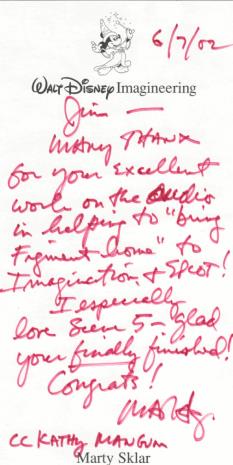 6/7/02
WALT DISNEY Imagineering
Jim —
MANY THANX
for your excellent
work on the audio
in helping to "bring
Figment home" to
Imagination & Epcot!
I especially
love Scene 5 – Glad
your finally finished!
Congrats!
MARTY.
CC KATHY MANGUM
Marty Sklar